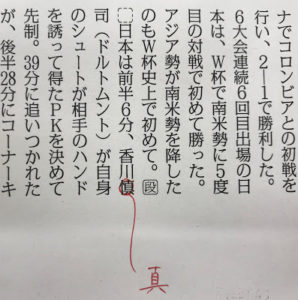 ナでコロンビアとの初戦を
行い、2―1で勝利した。
6大会連続6回目出場の日
本は、W杯で南米勢に5度
目の対戦で初めて勝った。
アジア勢が南米勢を降した
のもW杯史上で初めて。段
日本は前半6分、香川慎
司(ドルトムント)が自身
のシュートが相手のハンド
を誘って得たPKを決めて
先制。39分に追いつかれた
が、後半28分にコーナーキ
真